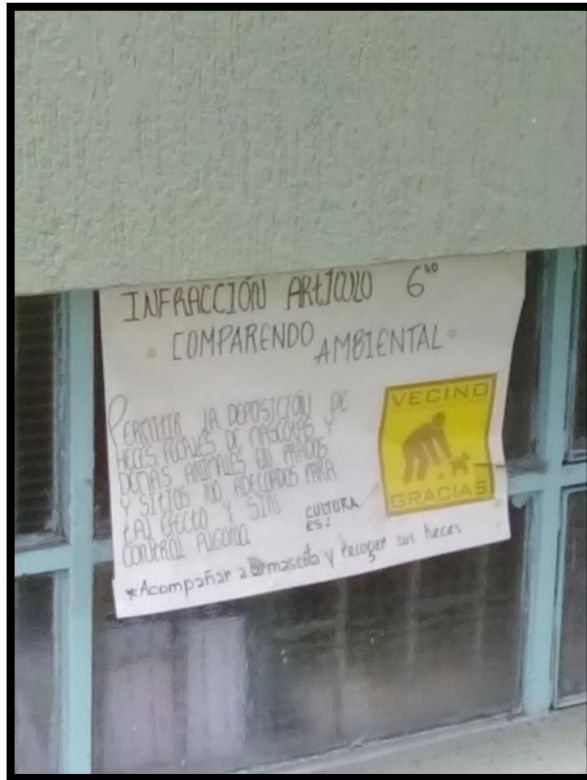 INFRACCIÓN ARTÍCULO 6to
COMPARENDO AMBIENTAL
PERMITIR LA DEPOSICIÓN DE
HECES FECALES DE MASCOTAS Y
DEMÁS ANIMALES EN PRADOS
Y SITIOS NO ADECUADOS PARA
TAL EFECTO Y SIN
CONTROL ALGUNO
VECINO
GRACIAS
CULTURA
ES:
*Acompañar a mascota y recoger sus heces